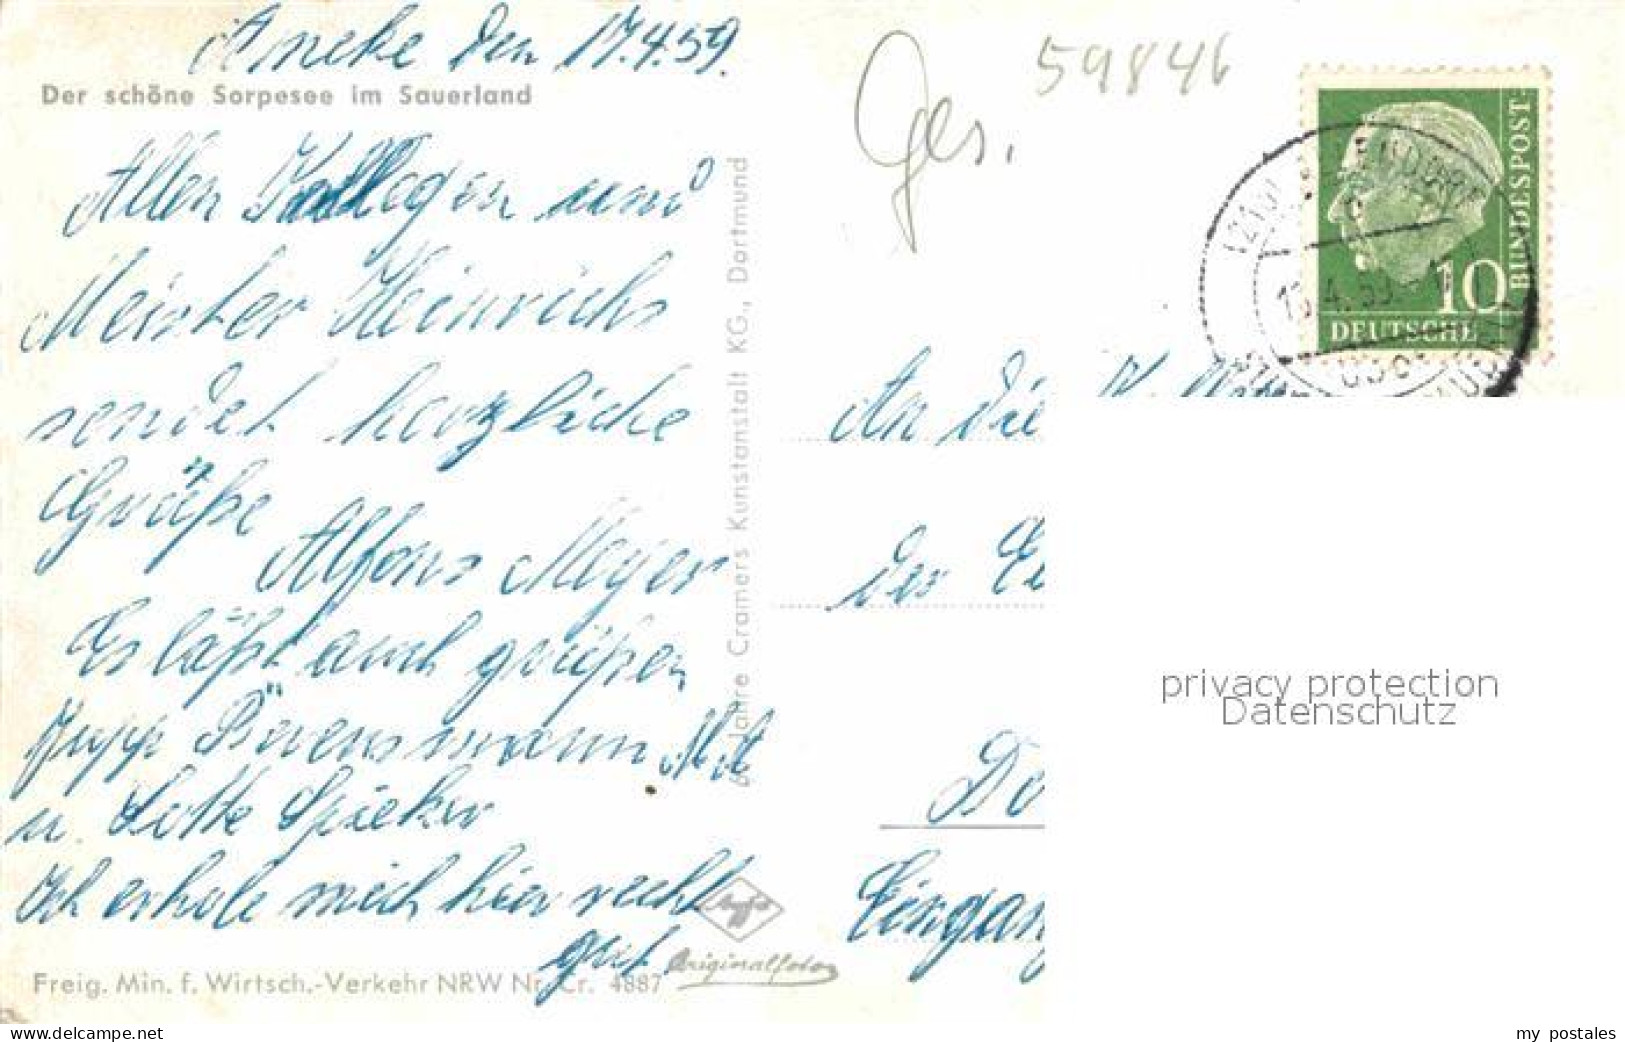 Ameke den 17.4.59.
Der schöne Sorpesee im Sauerland
Allen Kollegen und
Meister Heinrichs
sendet herzliche
Grüße
Alfons Meyer
Es läßt auch grüßen
Jupp Bävensmann
u. Lotte Spieker
Ich erhole mich hier recht
gut.
Freig. Min. f. Wirtsch.-Verkehr NRW Nr. Cr. 4887
Jahre Cramers Kunstanstalt KG., Dortmund
Agfa
Originalfoto
Ges.
59846
10
DEUTSCHE
BUNDESPOST
An die
der
Do
Eingang
privacy protection
Datenschutz
www.delcampe.net
my_postales